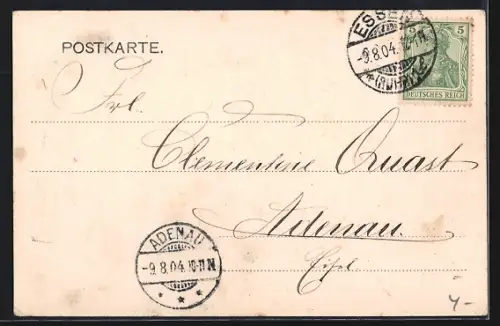 POSTKARTE.
ESSEN
-9.8.04.
*(RUHR)*
5
DEUTSCHES REICH
Frl.
Clementine Quast
Adenau.
Eifel
ADENAU
-9.8.04.10-11N.
* * *
4-